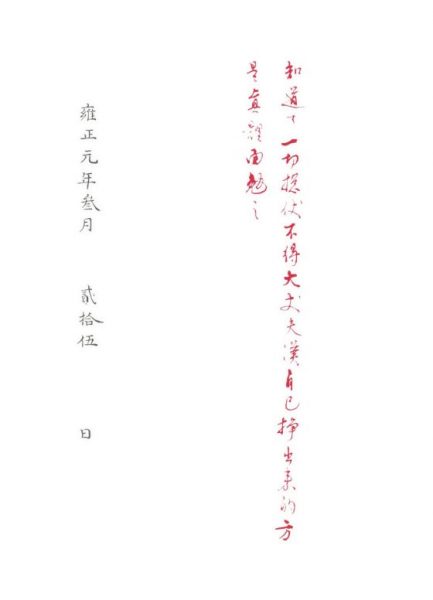 知道了一切摠仗不得大丈夫漢自己掙出来的方
是真體面勉之
雍正元年叁月 貳拾伍 日